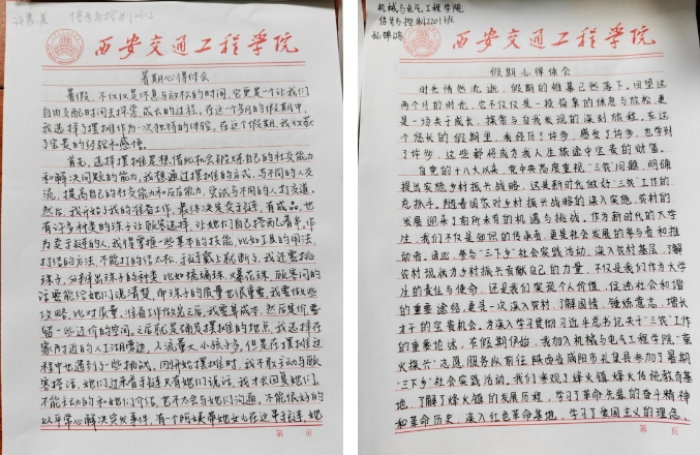 许
信号与控制2202
西安交通工程学院
暑期心得体会
暑假,不仅仅是休息与放松的时间,它更是一个让我们
自由支配时间去探索、成长的过程。在这个多月的假期中,
我选择了摆摊作为一次独特的体验,在这个假期,我收获
了宝贵的经验和感悟。
首先,选择摆摊是想借此机会锻炼自己的社交能力
和解决问题的能力,我想通过摆摊的方式,与不同的人交
流,提高自己的社交能力和应变能力,尝试与不同的人打交道,
然后,我开始了我的准备工作,最终决定卖手链,有成品,也
有许多种类的珠子让顾客选择,让她们自己搭配着串。作
为卖手链的人,我得掌握一些基本的技能,比如工具的用法,
打结的方法,不能打的结太松,手链戴上就断了,我还需挑
珠子,分辨出珠子的种类,比如琉璃珠、爆花珠,顾客问的
话要能给她们说清楚,而珠子的质量也很重要,我需做些
攻略,比对质量,
留一些讲价的空间。三后就是确定摆摊的地点,我选择在
家附近的人工湖旁边,人流量大,小孩子多,但是在摆摊过
程中也遇到了一些挑战,刚开始摆摊时,我不敢主动与顾
客搭话,她们过来看手链只有她们说话,我才会回复她们,
不能主动的和她们介绍,也不太会与她们沟通,不能很好的
以平常心解决突发事件,有个阿姨带她女儿在这串手链,她
第 页
机械与电气工程学院
信号与控制2201班
西安交通工程学院
假期心得体会
时光悄然流逝,假期的帷幕已然落下。回望这
两个月的时光,它不仅仅是一段简单的休息与放松,更
是一场关于成长、探索与自我发现的深刻旅程。在这
个悠长的假期里,我经历了许多,感受了许多,也学到
了许多,这些都将成为我人生旅途中宝贵的财富。
自党的十八大以来,党中央高度重视“三农”问题,明确
提出实施乡村振兴战略,这是新时代做好“三农”工作的
总抓手。随着国家对乡村振兴战略的深入实施,农村的
发展迎来了前所未有的机遇与挑战。作为新时代的大学
生,我们不仅是知识的传承者,更是社会发展的参与者和推
动者。因此,参与“三下乡”社会实践活动,深入农村基层,了解
农村现状为乡村振兴贡献自己的力量,不仅是我们作为大学
生的责任与使命,还是我们实现个人价值,促进社会和谐
的重要途经,更是一次深入农村,了解国情,锤炼意志,增长
才干的宝贵机会。为深入学习贯彻习近平总书记关于“三农”工作
的重要论述,在假期伊始,我加入机械与电气工程学院“萤
火振兴”志愿服务队前往陕西省咸阳市礼泉县参加了暑期
“三下乡”社会实践活动。我们参观了烽火镇烽火传说教育基
地,了解了烽火镇的发展历程,学习了革命先辈的奋斗精神
和革命历史,深入红色革命基地,学习了爱国主义的理念。
第 页